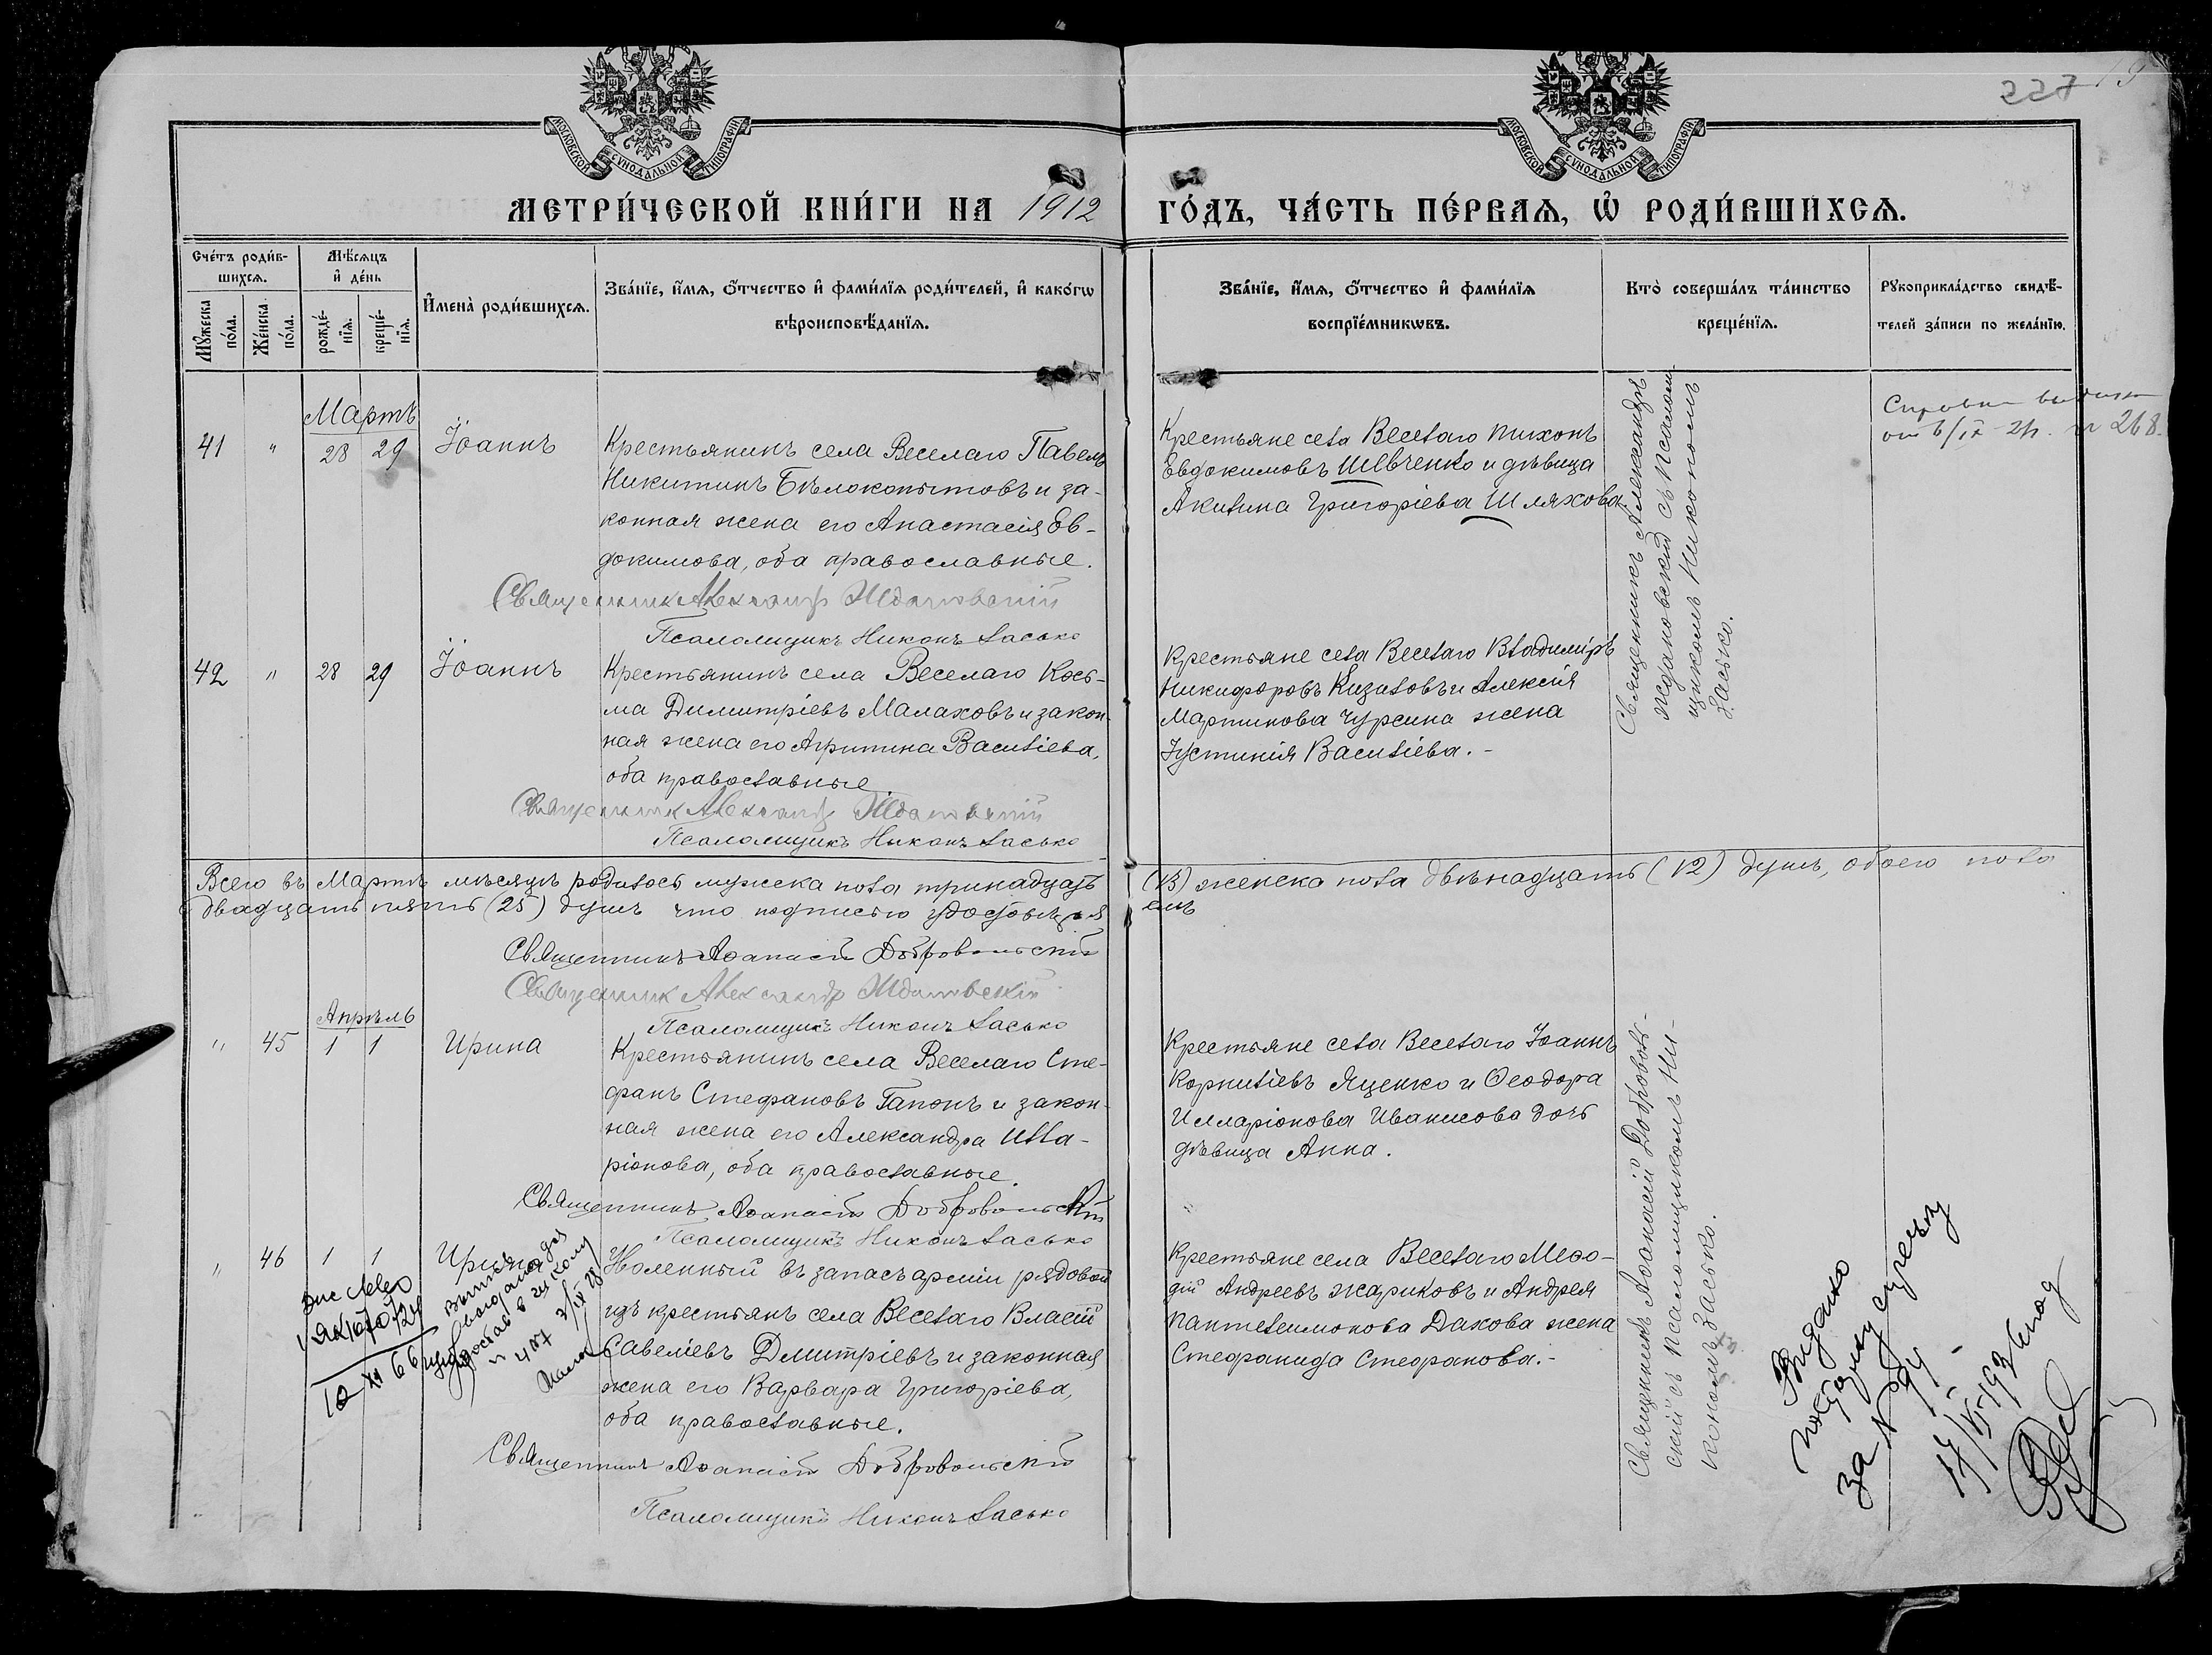 227
МОСКОВСКОЙ СѴНОДАЛЬНОЙ ТИПОГРАФІИ
МОСКОВСКОЙ СѴНОДАЛЬНОЙ ТИПОГРАФІИ
МЕТРИ́ЧЕСКОЙ КНИ́ГИ НА 1912
ГО́ДЪ, ЧА́СТЬ ПЕ́РВАѦ, Ѡ҆ РОДИ́ВШИХСѦ.
Сче́тъ роди́в-
шихсѧ.
Мꙋ́жеска по́ла.
Же́нска по́ла.
Мѣ́сѧцъ
и҆ де́нь
рожде́-
нїѧ.
креще́-
нїѧ.
И҆мена̀ роди́вшихсѧ.
Зва́нїе, и҆́мѧ, ѻ҆́тчество и҆ фами́лїѧ роди́телей, и҆ како́гѡ
вѣроисповѣ́данїѧ.
Зва́нїе, и҆́мѧ, ѻ҆́тчество и҆ фами́лїѧ
воспрїе́мникѡвъ.
Кто̀ соверша́лъ та́инство
креще́нїѧ.
Рꙋкоприкла́дство свидѣ́-
телей за́писи по жела́нїю.
Мартъ
41 " 28 29 Іоаннъ
Крестьянинъ села Веселаго Павелъ
Никитинъ Бѣлокопытовъ и за-
конная жена его Анастасія Ев-
докимова, оба православные.
Священник Александр Ждановский
Псаломщикъ Никонъ Засько
Крестьяне села Веселаго Тихонъ
Евдокимовъ Шевченко и дѣвица
Акилина Григоріева Шляхова.
Священникъ Александръ
Ждановскій съ псалом-
щикомъ Никономъ
Засько.
№ 268.
42 " 28 29 Іоаннъ
Крестьянинъ села Веселаго Кось-
ма Димитріевъ Малаховъ и закон-
ная жена его Агрипина Василіева,
оба православные
Священник Александр Ждановский
Псаломщикъ Никонъ Засько
Крестьяне села Веселаго Владиміръ
Никифоровъ Кизиловъ и Алексія
Мартинова Чурсина жена
Іустинія Василіева.-
Всего въ Мартѣ мѣсяцѣ родилось мужеска пола тринадцать
(13) женска пола двѣнадцать (12) душъ, обоего пола
двадцать пять (25) душъ что подписью удостовѣряемъ
Священникъ Аѳанасій Добровольскій
Священник Александр Ждановский
Псаломщикъ Никонъ Засько
Апрѣль
" 45 1 1 Ирина
Крестьянинъ села Веселаго Сте-
фанъ Стефановъ Гапонъ и закон-
ная жена его Александра Илла-
ріонова, оба православные.
Священникъ Аѳанасій Добровольскій
Псаломщикъ Никонъ Засько
Крестьяне села Веселаго Іоаннъ
Корниліевъ Яценко и Ѳеодора
Илларіонова Иванисова дочь
дѣвица Анна.
Священникъ Аѳанасій Доброволь-
скій съ псаломщикомъ Ни-
кономъ Засько.
" 46 1 1 Ирина
Уволенный въ запасъ арміи рядовой
изъ крестьянъ села Веселаго Власій
Савеліевъ Дмитріевъ и законная
жена его Варвара Григоріева,
оба православные.
Священникъ Аѳанасій Добровольскій
Псаломщикъ Никонъ Засько
Крестьяне села Веселаго Меѳо-
дій Андреевъ Жариковъ и Андрея
Пантелеимонова Дахова жена
Стефанида Стефанова.-
Видано
за № 94